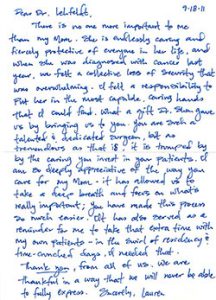 9-18-11
Dear Dr. Lehfeldt,
There is no one more important to me
than my Mom. She is endlessly caring and
fiercely protective of everyone in her life, and
when she was diagnosed with cancer last
year, we felt a collective loss of security that
was overwhelming. I felt a responsibility to
put her in the most capable, caring hands
that I could find. What a gift Dr. Shen gave
us by bringing us to you. You are such a
talented & dedicated surgeon, but as
tremendous as that is it is trumped by
by the caring you invest in your patients. I
am so deeply appreciative of the way you
care for my Mom - it has allowed us to
take a deep breath and focus on what's
really important; you have made this process
so much easier. It has also served as a
reminder for me to take that extra time with
my own patients - in the swirl of residency &
time-crunched days, I needed that.
Thank you, from all of us. We are
thankful in a way that we will never be able
to fully express. Sincerely, Lauren